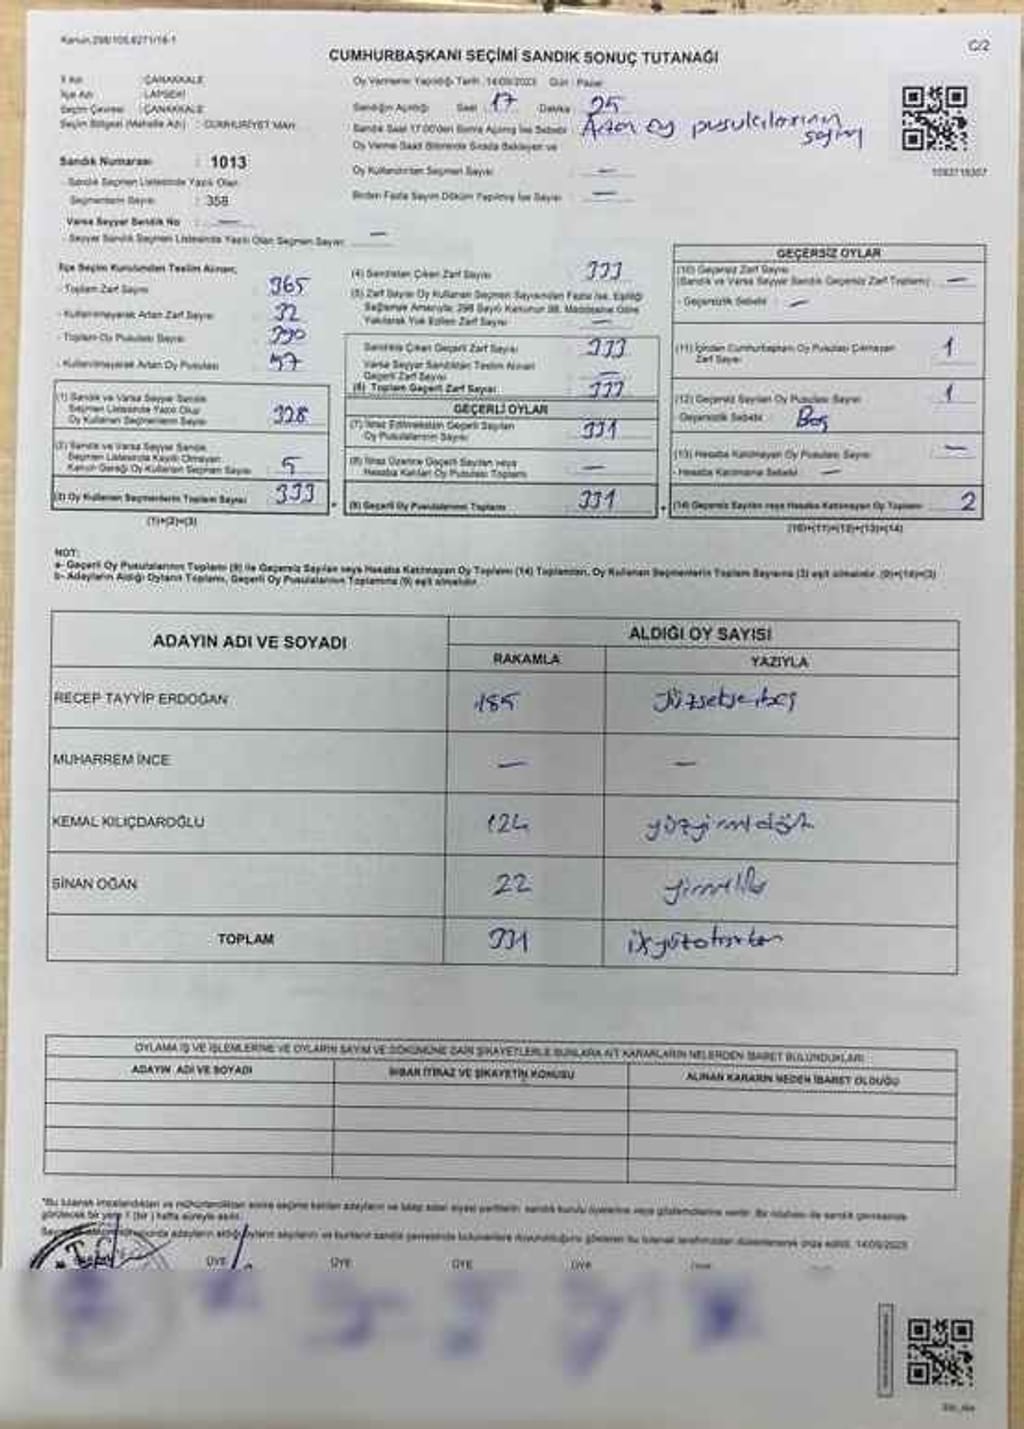 Kanun:298/105,6271/16-1
C/2
CUMHURBAŞKANI SEÇİMİ SANDIK SONUÇ TUTANAĞI
İl Adı : ÇANAKKALE
İlçe Adı : LAPSEKİ
Seçim Çevresi : ÇANAKKALE
Seçim Bölgesi (Mahalle Adı) : CUMHURİYET MAH.
Oy Vermenin Yapıldığı Tarih :14/05/2023 Gün : Pazar
Sandığın Açıldığı Saat : 17 Dakika : 25
Sandık Saat 17:00'den Sonra Açılmış İse Sebebi : Artan oy pusulalarının sayımı
Oy Verme Saati Bitiminde Sırada Bekleyen ve
Oy Kullandırılan Seçmen Sayısı : —
Birden Fazla Sayım Döküm Yapılmış İse Sayısı : —
Sandık Numarası : 1013
Sandık Seçmen Listesinde Yazılı Olan
Seçmenlerin Sayısı : 358
Varsa Seyyar Sandık No : —
- Seyyar Sandık Seçmen Listesinde Yazılı Olan Seçmen Sayısı: —
İlçe Seçim Kurulundan Teslim Alınan;
- Toplam Zarf Sayısı 365
- Kullanılmayarak Artan Zarf Sayısı 32
- Toplam Oy Pusulası Sayısı 390
- Kullanılmayarak Artan Oy Pusulası 57
(1) Sandık ve Varsa Seyyar Sandık
Seçmen Listesinde Yazılı Olup
Oy Kullanan Seçmenlerin Sayısı 328
(2) Sandık ve Varsa Seyyar Sandık
Seçmen Listesinde Kayıtlı Olmayan
Kanun Gereği Oy Kullanan Seçmen Sayısı 5
(3) Oy Kullanan Seçmenlerin Toplam Sayısı 333
(1)+(2)=(3)
(4) Sandıktan Çıkan Zarf Sayısı 333
(5) Zarf Sayısı Oy Kullanan Seçmen Sayısından Fazla ise, Eşitliği
Sağlamak Amacıyla; 298 Sayılı Kanunun 98. Maddesine Göre
Yakılarak Yok Edilen Zarf Sayısı —
Sandıkta Çıkan Geçerli Zarf Sayısı 333
Varsa Seyyar Sandıktan Teslim Alınan
Geçerli Zarf Sayısı —
(6) Toplam Geçerli Zarf Sayısı 333
GEÇERLİ OYLAR
(7) İtiraz Edilmeksizin Geçerli Sayılan
Oy Pusulalarının Sayısı 331
(8) İtiraz Üzerine Geçerli Sayılan veya
Hesaba Katılan Oy Pusulası Toplamı —
(9) Geçerli Oy Pusulalarının Toplamı 331
GEÇERSİZ OYLAR
(10) Geçersiz Zarf Sayısı
(Sandık ve Varsa Seyyar Sandık Geçersiz Zarf Toplamı) —
- Geçersizlik Sebebi : —
(11) İçinden Cumhurbaşkanı Oy Pusulası Çıkmayan
Zarf Sayısı 1
(12) Geçersiz Sayılan Oy Pusulası Sayısı 1
- Geçersizlik Sebebi : Boş
(13) Hesaba Katılmayan Oy Pusulası Sayısı —
- Hesaba Katılmama Sebebi : —
(14) Geçersiz Sayılan veya Hesaba Katılmayan Oy Toplamı 2
(10)+(11)+(12)+(13)=(14)
NOT:
a- Geçerli Oy Pusulalarının Toplamı (9) ile Geçersiz Sayılan veya Hesaba Katılmayan Oy Toplamı (14) Toplamları, Oy Kullanan Seçmenlerin Toplam Sayısına (3) eşit olmalıdır. (9)+(14)=(3)
b- Adayların Aldığı Oyların Toplamı, Geçerli Oy Pusulalarının Toplamına (9) eşit olmalıdır.
ADAYIN ADI VE SOYADI
ALDIĞI OY SAYISI
RAKAMLA YAZIYLA
RECEP TAYYİP ERDOĞAN 185 Yüzseksenbeş
MUHARREM İNCE — —
KEMAL KILIÇDAROĞLU 124 yüzyirmidört
SİNAN OĞAN 22 yirmiiki
TOPLAM 331
OYLAMA İŞ VE İŞLEMLERİNE VE OYLARIN SAYIM VE DÖKÜMÜNE DAİR ŞİKAYETLERLE BUNLARA AİT KARARLARIN NELERDEN İBARET BULUNDUKLARI
ADAYIN ADI VE SOYADI İHBAR İTİRAZ VE ŞİKAYETİN KONUSU ALINAN KARARIN NEDEN İBARET OLDUĞU
ÜYE ÜYE ÜYE ÜYE